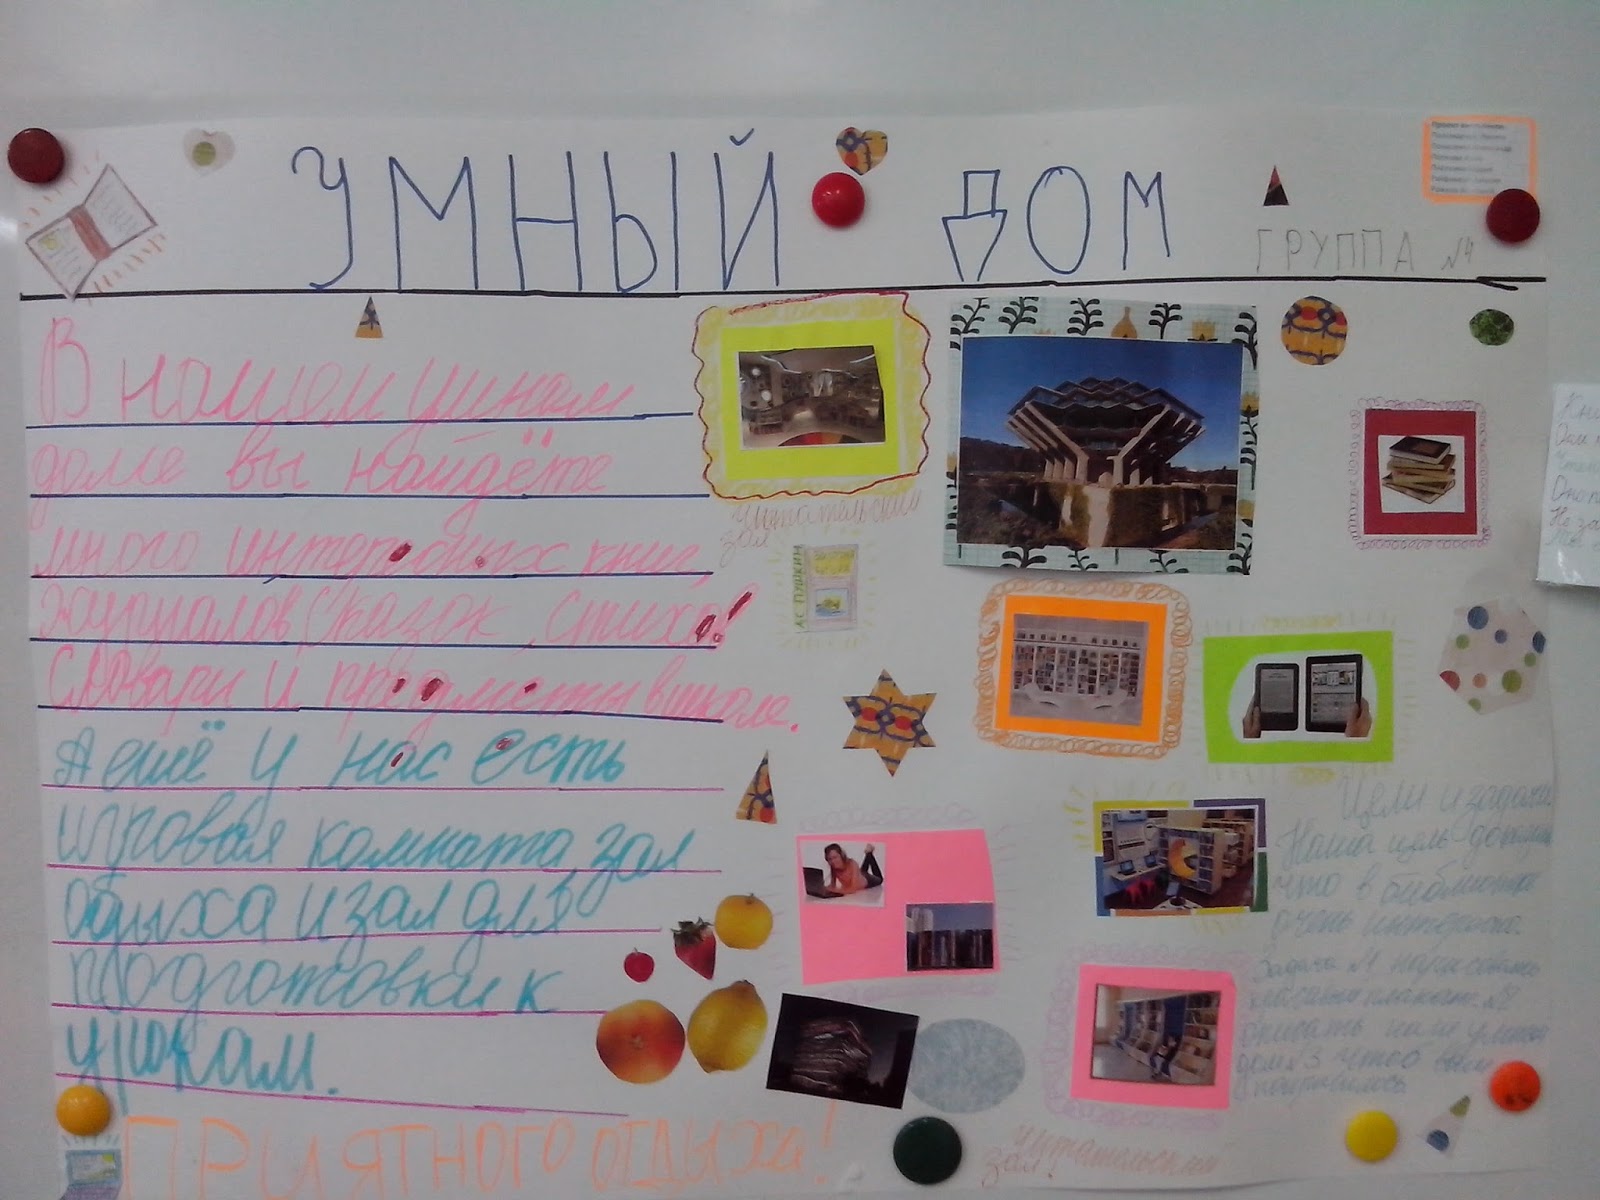 УМНЫЙ ДОМ
ГРУППА №4
В нашем умном
доме вы найдёте
много интересных книг,
журналов, сказок, стихов!
Словари и предметы в школе.
А ещё у нас есть
игровая комната, зал
отдыха и зал для
подготовки к
урокам.
ПРИЯТНОГО ОТДЫХА!
Читательский
зал
А.С. ПУШКИН
Цели и задачи
Наша цель-доказать
что в библиотеке
очень интересно.
Задача №1 нарисовать
красивый плакат. №2
описать наш умный
дом. №3 чтоб вам
понравилось
Читательский
зал!